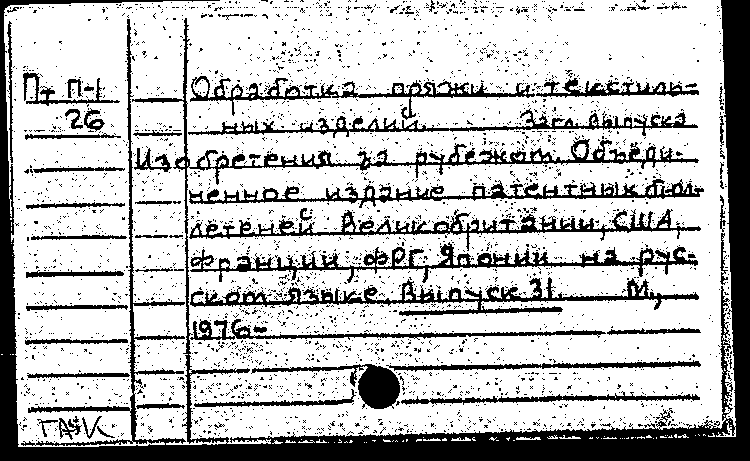 Пт П-1
26
Обработка пряжи и текстиль-
ных изделий. Загл. выпуска
Изобретения за рубежом. Объеди-
ненное издание патентных бюл-
летеней Великобритании, США,
Франции, ФРГ, Японии на рус-
ском языке. Выпуск 31. М.,
1976-